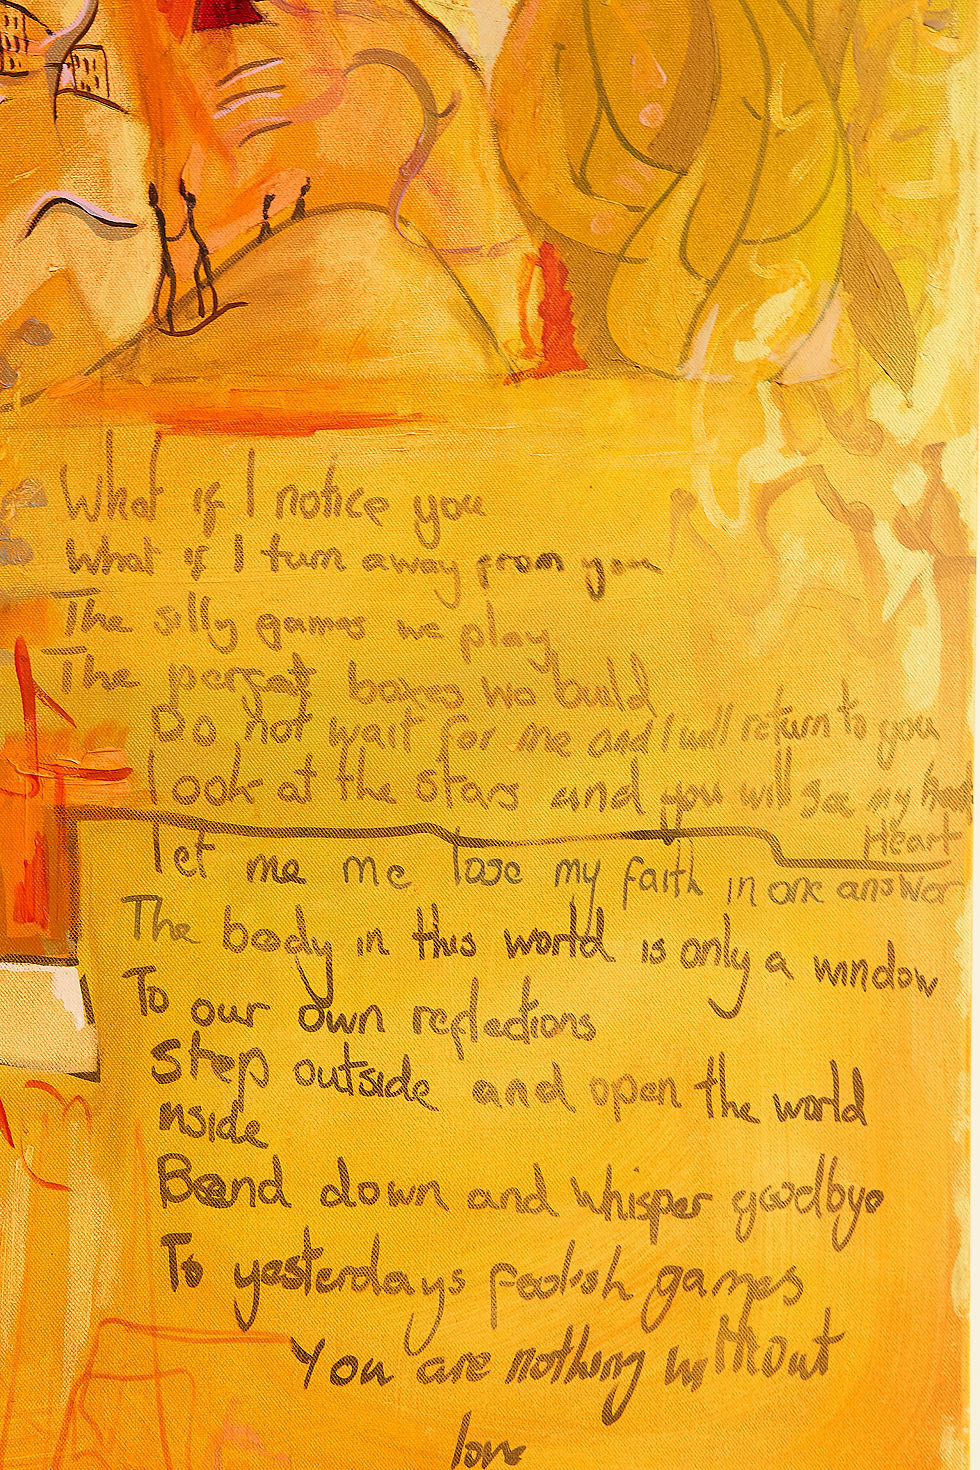 What if I notice you
What if I turn away from you
The silly games we play
The perfect boxes we build
Do not wait for me and I will return to you
Look at the stars and you will see my
Heart
Let me me lose my faith in one answer
The body in this world is only a window
To our own reflections
Step outside and open the world
nside
Bend down and whisper goodbye
To yesterdays foolish games
You are nothing without
love